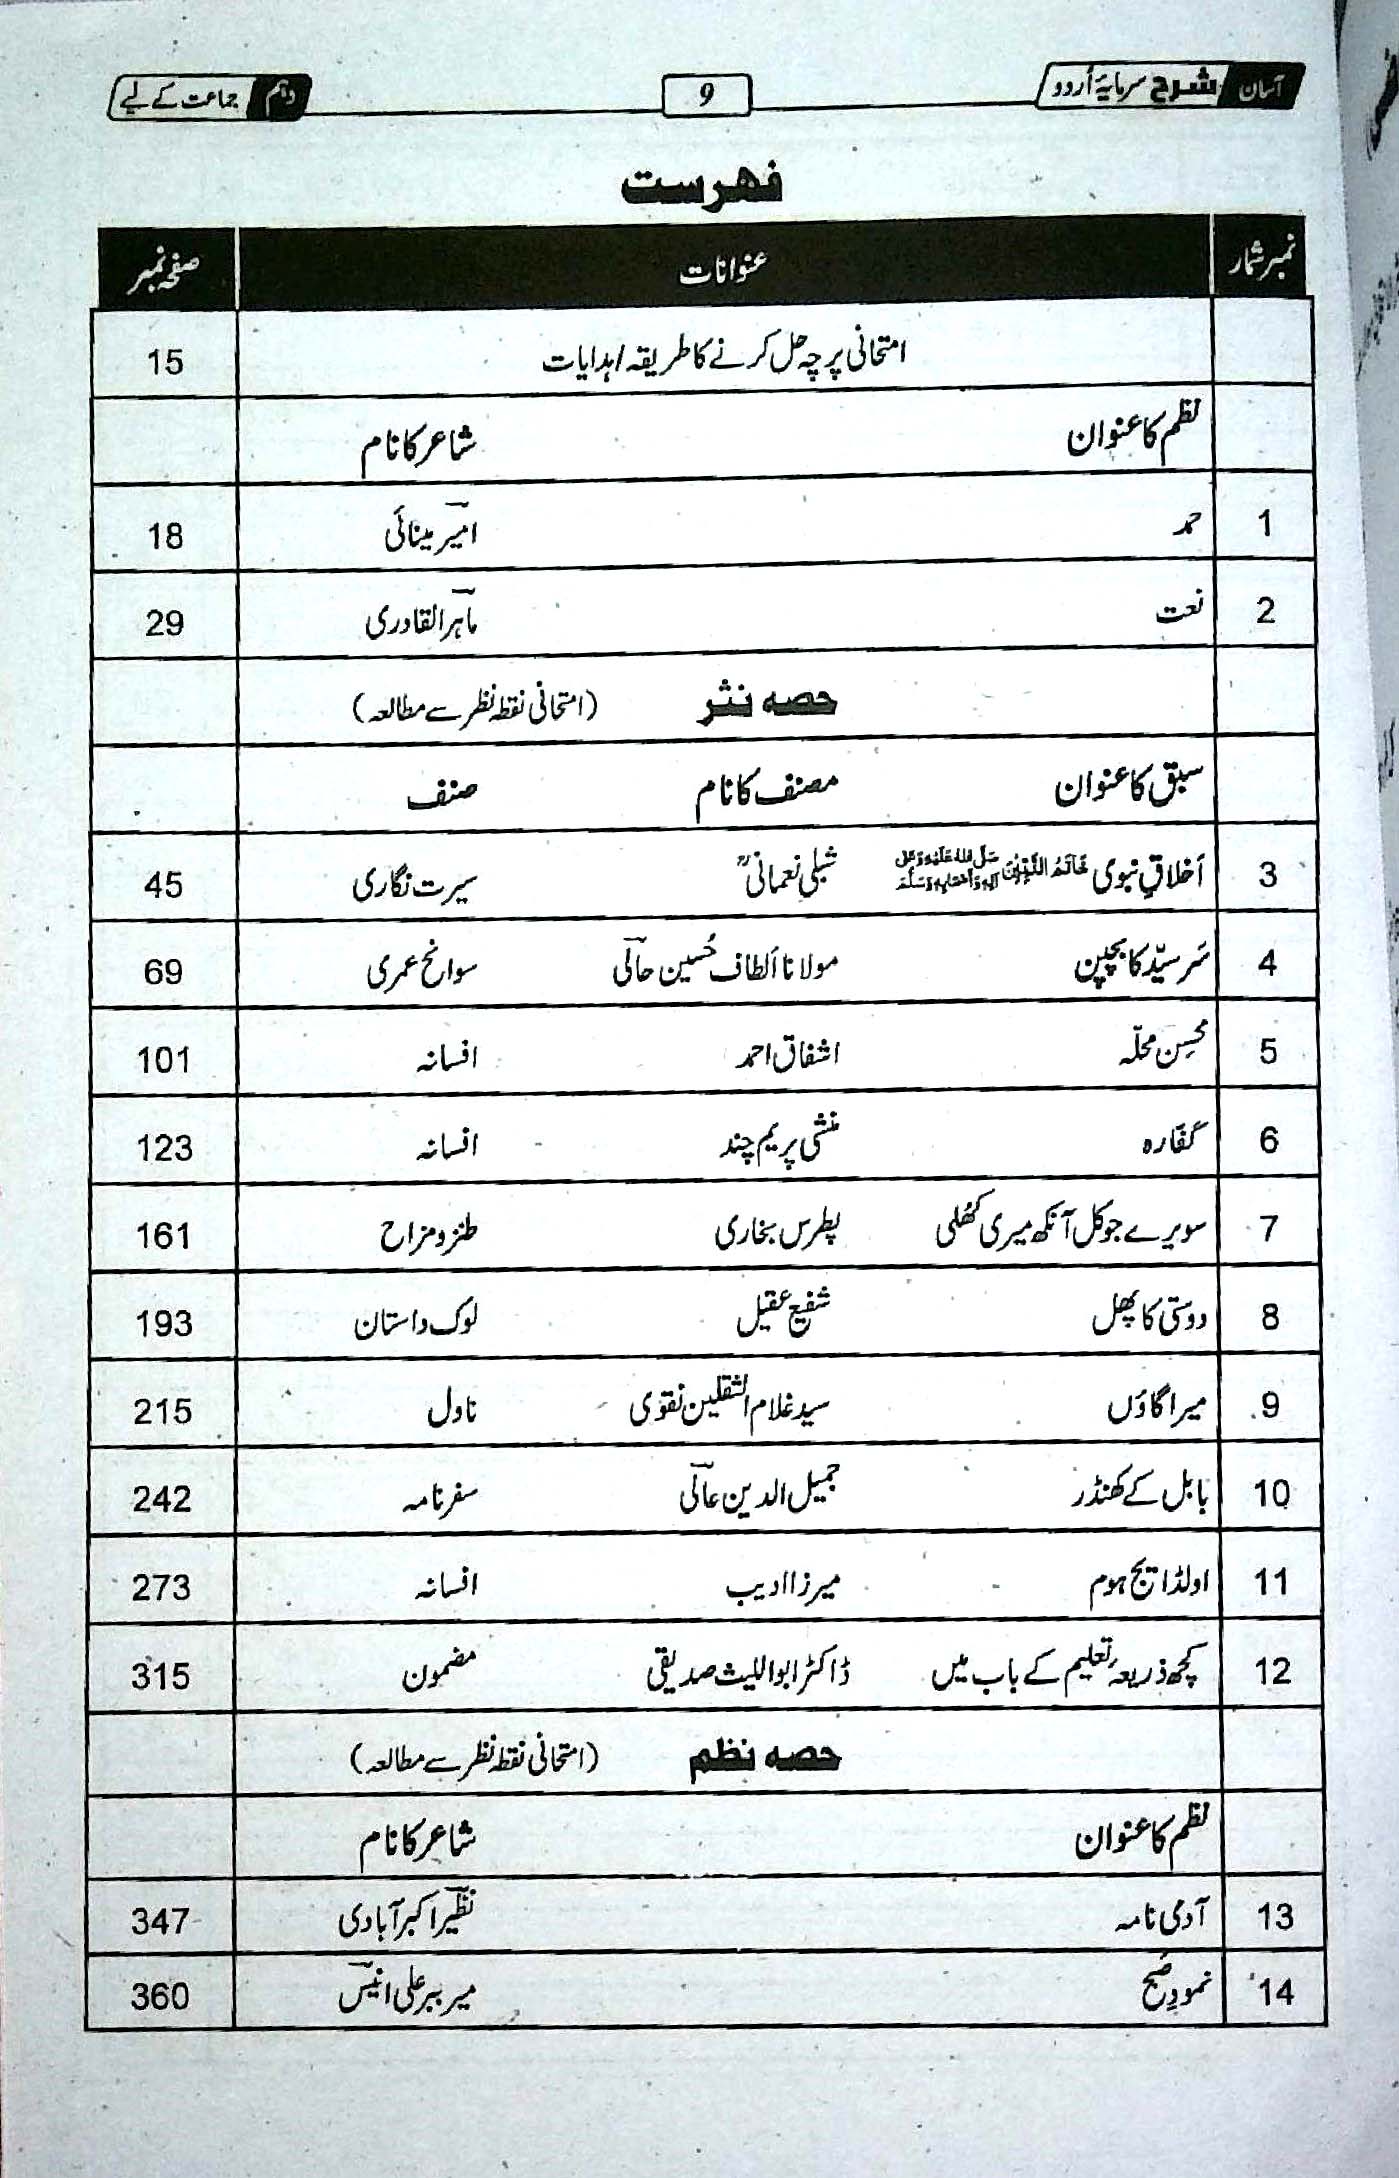 آسان شرح سرمایۂ اُردو 9 دہم جماعت کے لیے
فہرست
نمبر شمار عنوانات صفحہ نمبر
امتحانی پرچہ حل کرنے کا طریقہ / ہدایات 15
نظم کا عنوان شاعر کا نام
1 حمد امیرؔ مینائی 18
2 نعت ماہرؔ القادری 29
حصہ نثر (امتحانی نقطہ نظر سے مطالعہ)
سبق کا عنوان مصنف کا نام صنف
3 اَخلاقِ نبوی خَاتَمُ النَّبِیّٖنَ صَلَّی اللہُ عَلَیْہِ وَعَلٰی آلِہٖ وَاَصْحَابِہٖ وَسَلَّمَ شبلی نعمانیؒ سیرت نگاری 45
4 سَر سیّد کا بچپن مولانا اَلطاف حُسین حالیؔ سوانح عمری 69
5 محسِن محلّہ اشفاق احمد افسانہ 101
6 کَفّارہ منشی پریم چند افسانہ 123
7 سویرے جو کل آنکھ میری کُھلی پطرس بخاری طنز و مزاح 161
8 دوستی کا پھل شفیع عقیل لوک داستان 193
9 میرا گاؤں سید غلام الثقلین نقوی ناول 215
10 بابل کے کھنڈر جمیل الدین عالیؔ سفرنامہ 242
11 اولڈ ایج ہوم میرزا ادیب افسانہ 273
12 کچھ ذریعۂ تعلیم کے باب میں ڈاکٹر ابواللیث صدیقی مضمون 315
حصہ نظم (امتحانی نقطہ نظر سے مطالعہ)
نظم کا عنوان شاعر کا نام
13 آدمی نامہ نظیرؔ اکبر آبادی 347
14 نمودِ صُبح میر ببر علی انیسؔ 360